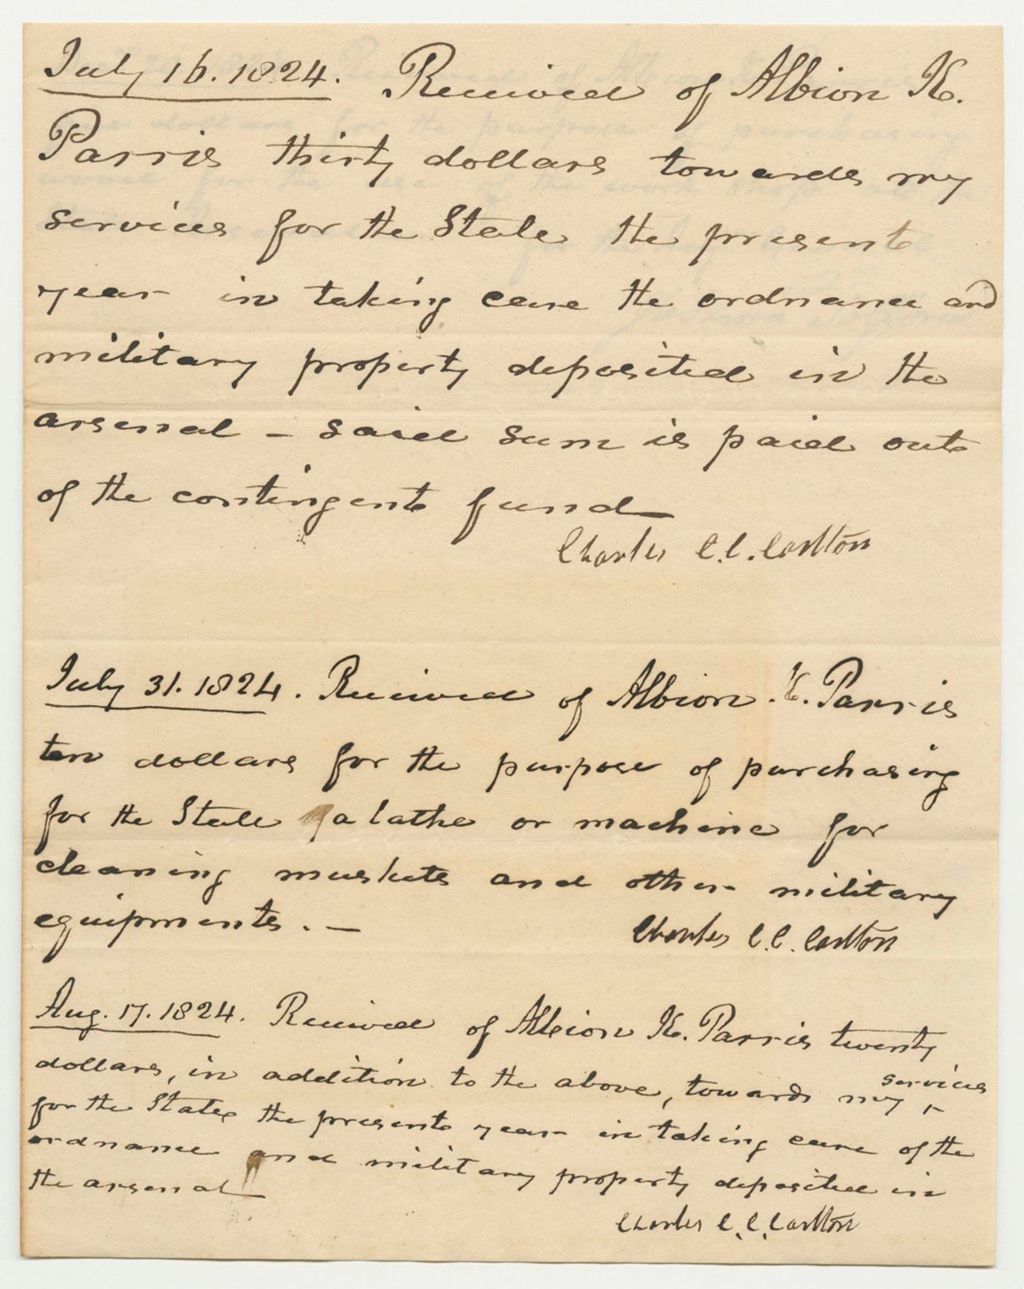 July 16. 1824. Received of Albion K.
Parris thirty dollars towards my
services for the State the present
year in taking care the ordnance and
military property deposited in the
arsenal - said sum is paid out
of the contingent fund
Charles C. C. Carlton
July 31. 1824. Received of Albion K. Parris
ten dollars for the purpose of purchasing
for the State a lathe or machine for
cleaning muskets and other military
equipments. -
Charles C. C. Carlton
Aug. 17. 1824. Received of Albion K. Parris twenty
dollars, in addition to the above, towards my services
for the State the present year in taking care of the
ordnance and military property deposited in
the arsenal
Charles C. C. Carlton